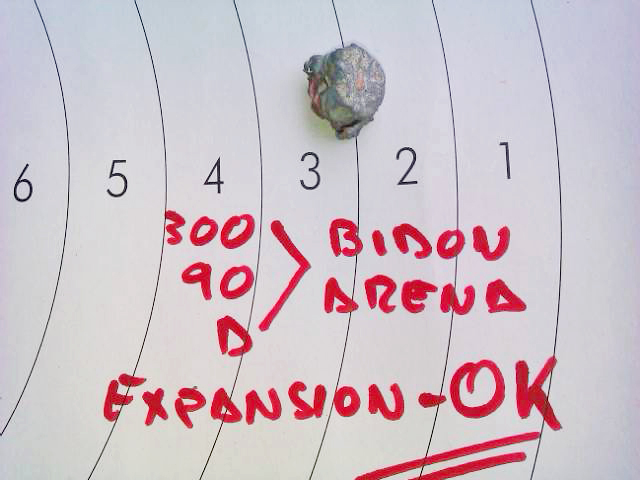 6 5 4 3 2 1
300 > BIDON
90 ARENA
A
EXPANSION-OK